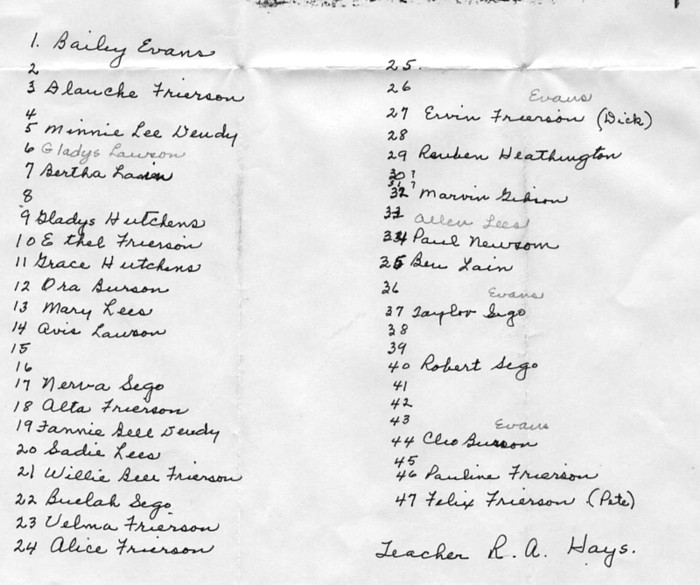 1. Bailey Evans
2
3 Blanche Frierson
4
5 Minnie Lee Dendy
6 Gladys Lawson
7 Bertha
8
9 Gladys Hutchens
10 Ethel Frierson
11 Grace Hutchens
12 Ora Burson
13 Mary Lees
14 Avis Lawson
15
16
17 Nerva Sego
18 Alta Frierson
19 Fannie Bell Dendy
20 Sadie Lees
21 Willie Bee Frierson
22 Buelah Sego
23 Velma Frierson
24 Alice Frierson
25.
26
Evans
27 Ervin Frierson (Dick)
28
29 Reuben Heathington
30?
31?
32 Marvin Gibson
33 Allen Lees
34 Paul Newsom
35 Ben Lain
36
Evans
37 Taylor Sego
38
39
40 Robert Sego
41
42
43
Evans
44 Cleo Burson
45
46 Pauline Frierson
47 Felix Frierson (Pete)
Teacher R. A. Hays.